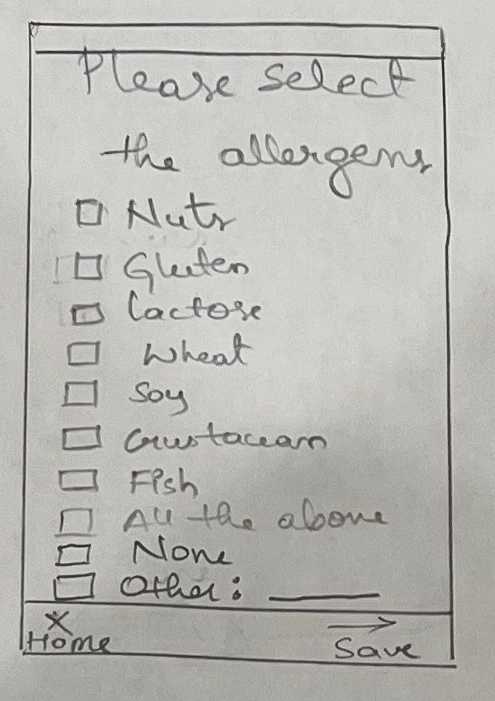 Please select
the allergens
Nuts
Gluten
Lactose
Wheat
Soy
Crustacean
Fish
All the above
None
Other: ______
Home
Save